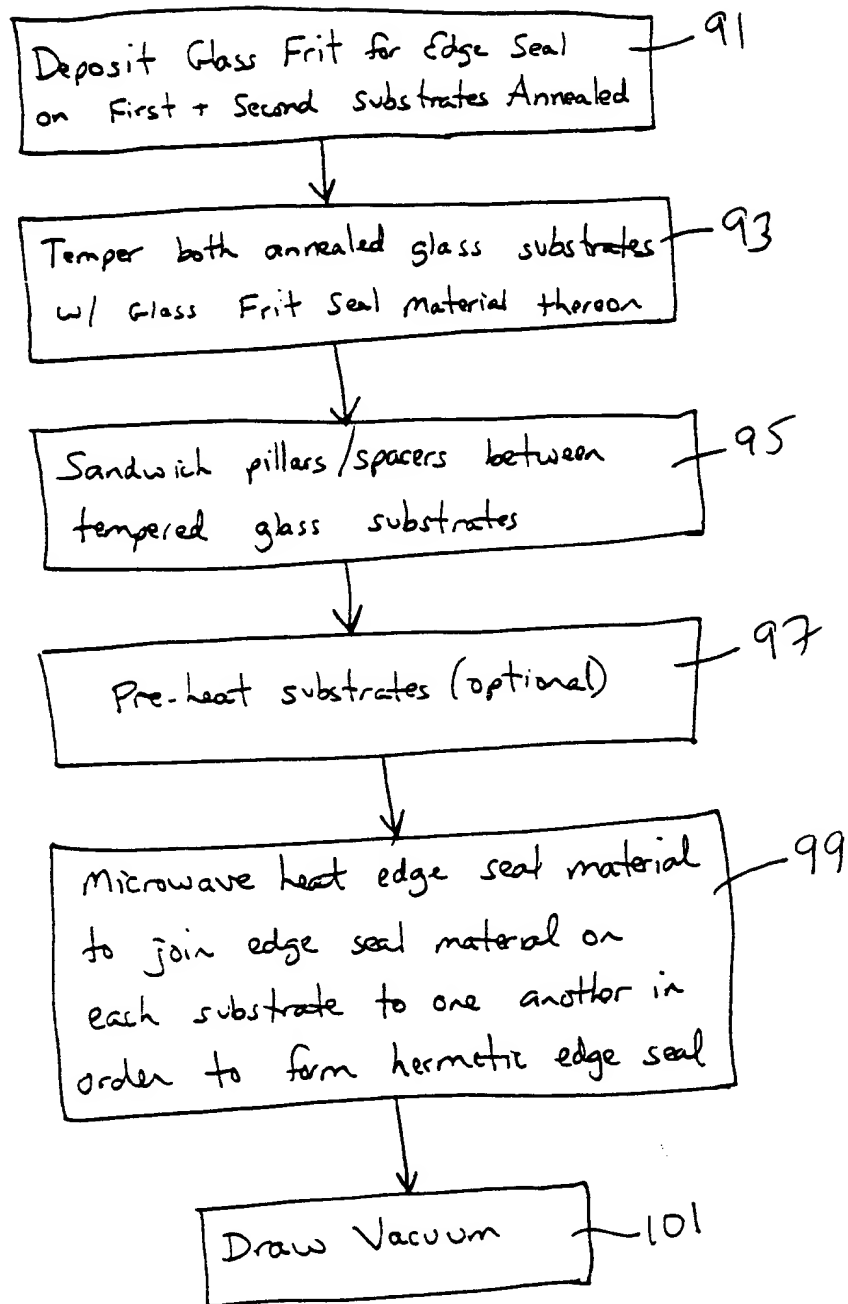 Deposit Glass Frit for Edge Seal
on First + Second substrates Annealed
91
Temper both annealed glass substrates
w/ Glass Frit Seal Material thereon
93
Sandwich pillars/spacers between
tempered glass substrates
95
Pre-heat substrates (optional)
97
Microwave heat edge seal material
to join edge seal material on
each substrate to one another in
order to form hermetic edge seal
99
Draw Vacuum
101